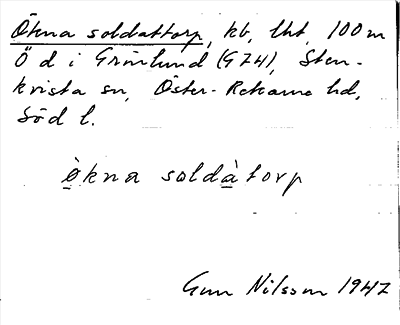 Ökna soldattorp, kb, lht, 100 m
Ö d i Grinlund (G 74), Sten-
kvista sn, Öster-Rekarne hd,
Söd l.
ö̀kna soldàtorp
Gun Nilsson 1947